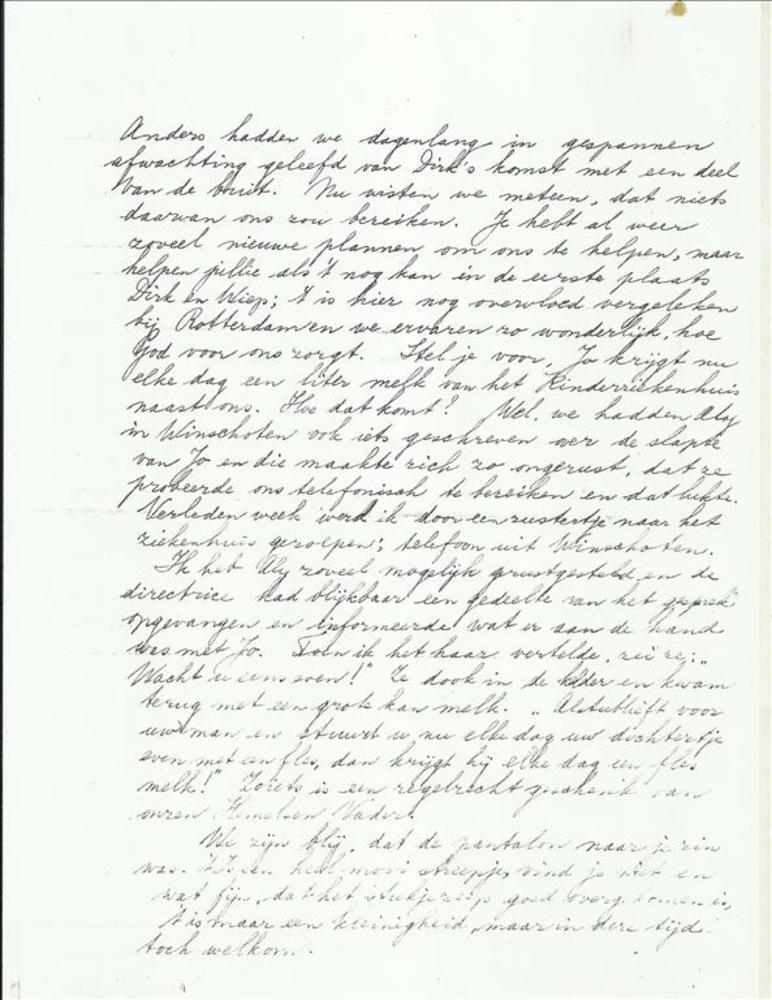 Anders hadden we dagenlang in gespannen
afwachting geleefd van Dirk's komst met een deel
van de buit. Nu wisten we meteen, dat niets
daarvan ons zou bereiken. Je hebt al weer
zoveel nieuwe plannen om ons te helpen, maar
helpen jullie als 't nog kan in de eerste plaats
Dirk en Wiep; 't is hier nog overvloed vergeleken
bij Rotterdam en we ervaren zo wonderlijk, hoe
God voor ons zorgt. Stel je voor, Jo krijgt nu
elke dag een liter melk van het Kinderziekenhuis
naast ons. Hoe dat komt? Wel, we hadden Aly
in Winschoten ook iets geschreven over de slapte
van Jo en die maakte zich zo ongerust, dat ze
probeerde ons telefonisch te bereiken en dat lukte.
Verleden week werd ik door een zustertje naar het
ziekenhuis geroepen; telefoon uit Winschoten.
Ik heb Aly zoveel mogelijk gerustgesteld en de
directrice had blijkbaar een gedeelte van het gesprek
opgevangen en informeerde wat er aan de hand
was met Jo. Toen ik het haar vertelde, zei ze: „
Wacht u eens even!" Ze dook in de kelder en kwam
terug met een grote kan melk. „Alstublieft voor
uw man en stuurt u nu elke dag uw dochtertje
even met een fles, dan krijgt hij elke dag een fles
melk!" Zoiets is een regelrecht geschenk van
onzen Hemelsen Vader.
We zijn blij, dat de pantalon naar je zin
was. 't Is een heel mooi streepje, vind je niet en
wat fijn, dat het stukje zeep goed overgekomen is,
't is maar een kleinigheid, maar in deze tijd
toch welkom.